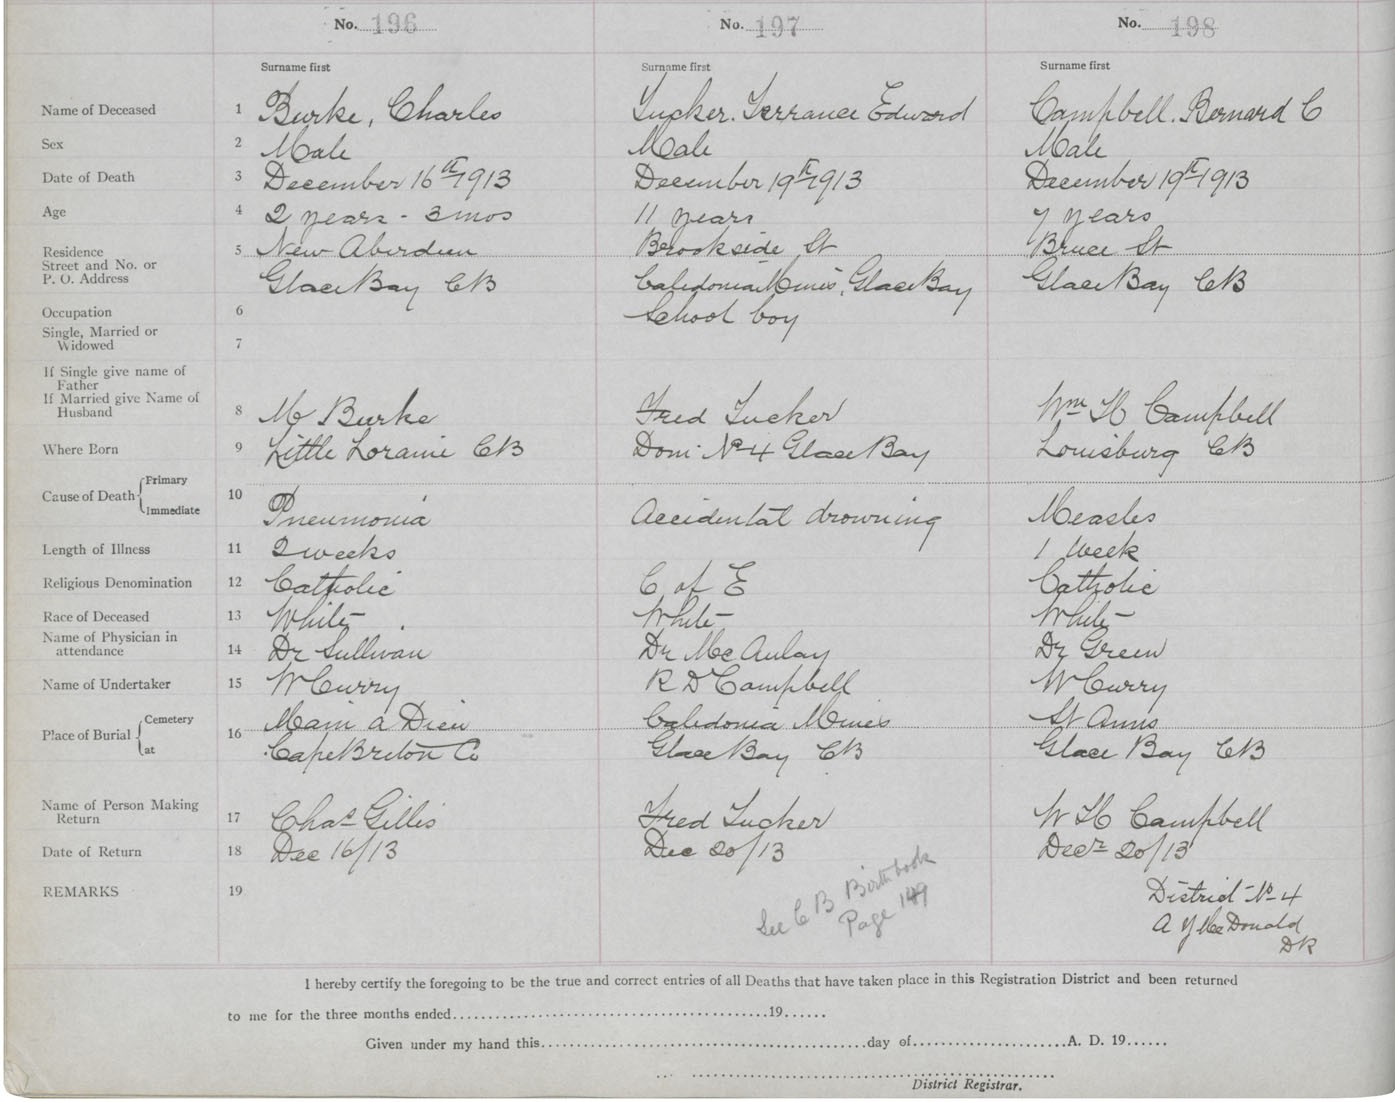 No. 196 No. 197 No. 198
Surname first Surname first Surname first
Name of Deceased 1 Burke, Charles Tucker. Terrance Edward Campbell. Bernard C
Sex 2 Male Male Male
Date of Death 3 December 16th 1913 December 19th 1913 December 19th 1913
Age 4 2 years - 3 mos 11 years 7 years
Residence 5 New Aberdeen Brookside St Bruce St
Street and No. or
P. O. Address Glace Bay CB Caledonia Mines, Glace Bay Glace Bay CB
Occupation 6 School boy
Single, Married or
Widowed 7
If Single give name of
Father
If Married give Name of
Husband 8 M Burke Fred Tucker Wm H Campbell
Where Born 9 Little Loraine CB Dom No 4 Glace Bay Louisburg CB
Cause of Death Primary
Immediate 10 Pneumonia Accidental drowning Measles
Length of Illness 11 2 weeks 1 week
Religious Denomination 12 Catholic C of E Catholic
Race of Deceased 13 White White White
Name of Physician in
attendance 14 Dr Sullivan Dr McAulay Dr Green
Name of Undertaker 15 W Curry R D Campbell W Curry
Place of Burial Cemetery 16 Main a Dieu Caledonia Mines St Anns
at Cape Breton Co Glace Bay CB Glace Bay CB
Name of Person Making
Return 17 Chas Gillis Fred Tucker W H Campbell
Date of Return 18 Dec 16/13 Dec 20/13 Decr 20/13
REMARKS 19
See C B Birth book
Page 149
District No 4
A McDonald
DR
I hereby certify the foregoing to be the true and correct entries of all Deaths that have taken place in this Registration District and been returned
to me for the three months ended 19
Given under my hand this day of A. D. 19
District Registrar.